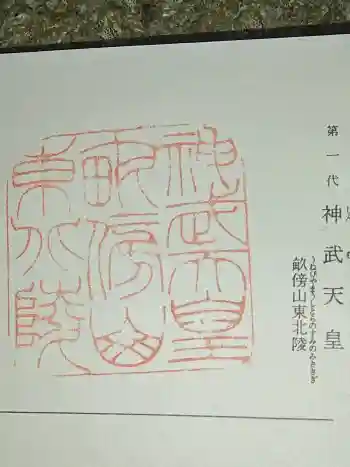 第一代 神武天皇
畝傍山東北陵
うねびやまのうしとらのすみのみささぎ
神武天皇
畝傍山
東北陵